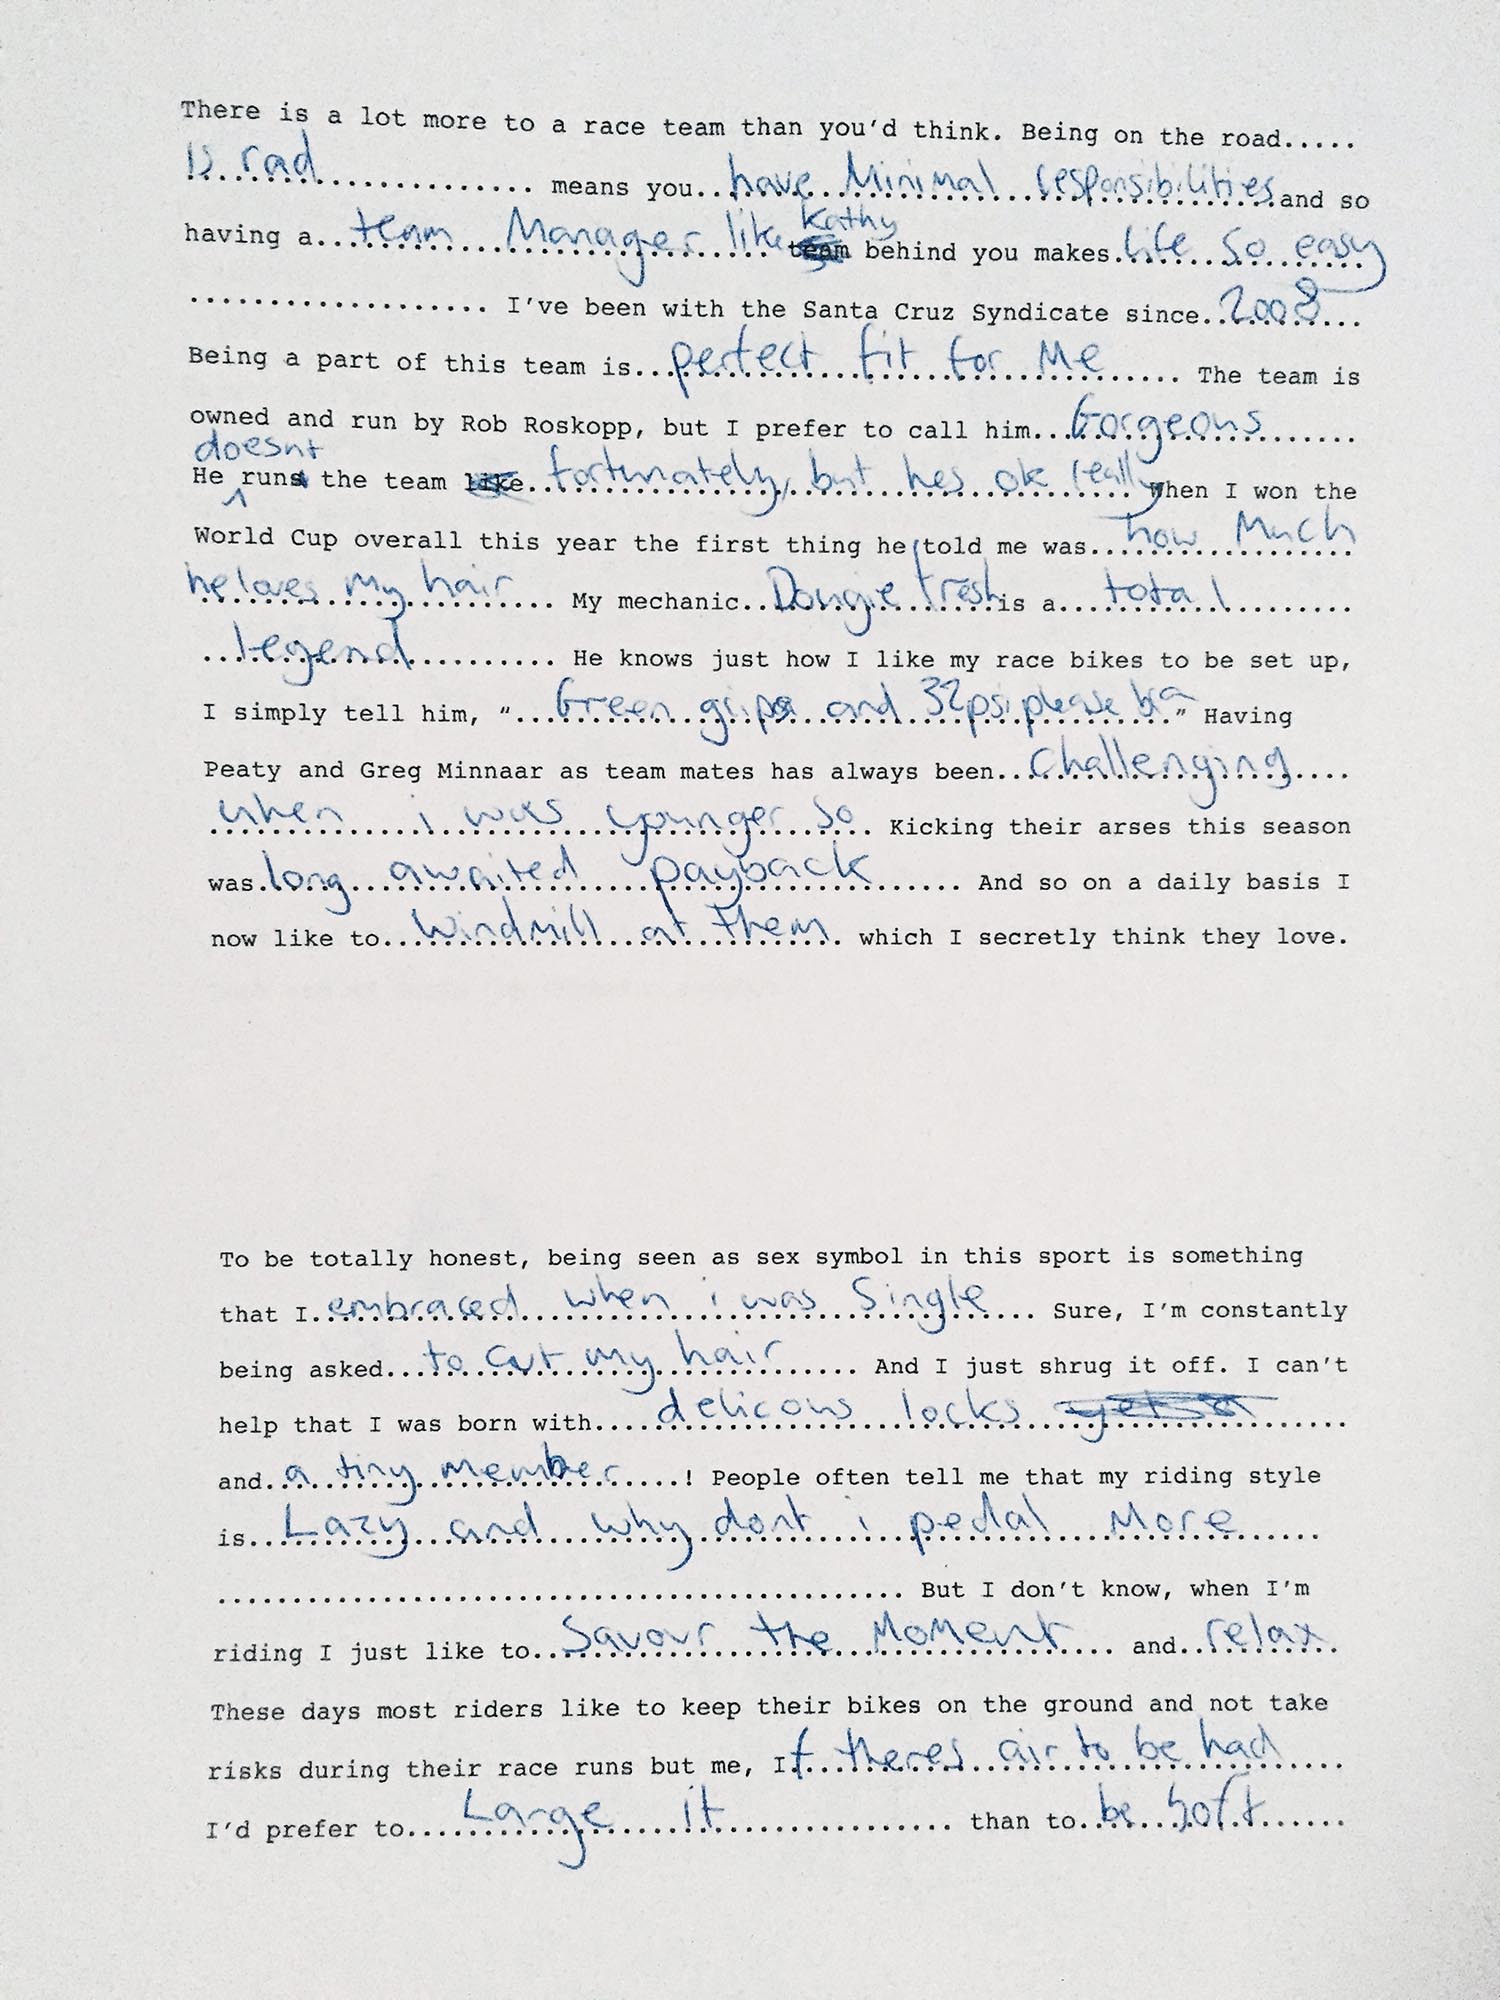 There is a lot more to a race team than you'd think. Being on the road.....
is rad...................... means you..have Minimal responsibilities.and so
having a...team Manager like Kathy team behind you makes.life so easy
................... I've been with the Santa Cruz Syndicate since..2008...
Being a part of this team is...perfect fit for Me..... The team is
owned and run by Rob Roskopp, but I prefer to call him...Gorgeous......
He doesnt run the team like..fortunately, but hes ok really When I won the
World Cup overall this year the first thing he told me was..how Much
he loves my hair... My mechanic...Dougie fresh is a....total........
...legend.......... He knows just how I like my race bikes to be set up,
I simply tell him, "...Green grips and 32psi please bra." Having
Peaty and Greg Minnaar as team mates has always been...Challenging....
when i was younger so.. Kicking their arses this season
was.long awaited payback...... And so on a daily basis I
now like to...Windmill at them. which I secretly think they love.
To be totally honest, being seen as sex symbol in this sport is something
that I..embraced when i was Single... Sure, I'm constantly
being asked...to Cut my hair..... And I just shrug it off. I can't
help that I was born with....delicous locks.......
and..a tiny member....! People often tell me that my riding style
is..Lazy and why dont i pedal More......
.............................................. But I don't know, when I'm
riding I just like to...Savour the MoMent... and..relax.
These days most riders like to keep their bikes on the ground and not take
risks during their race runs but me, If theres air to be had....
I'd prefer to....Large it............... than to..be Soft......